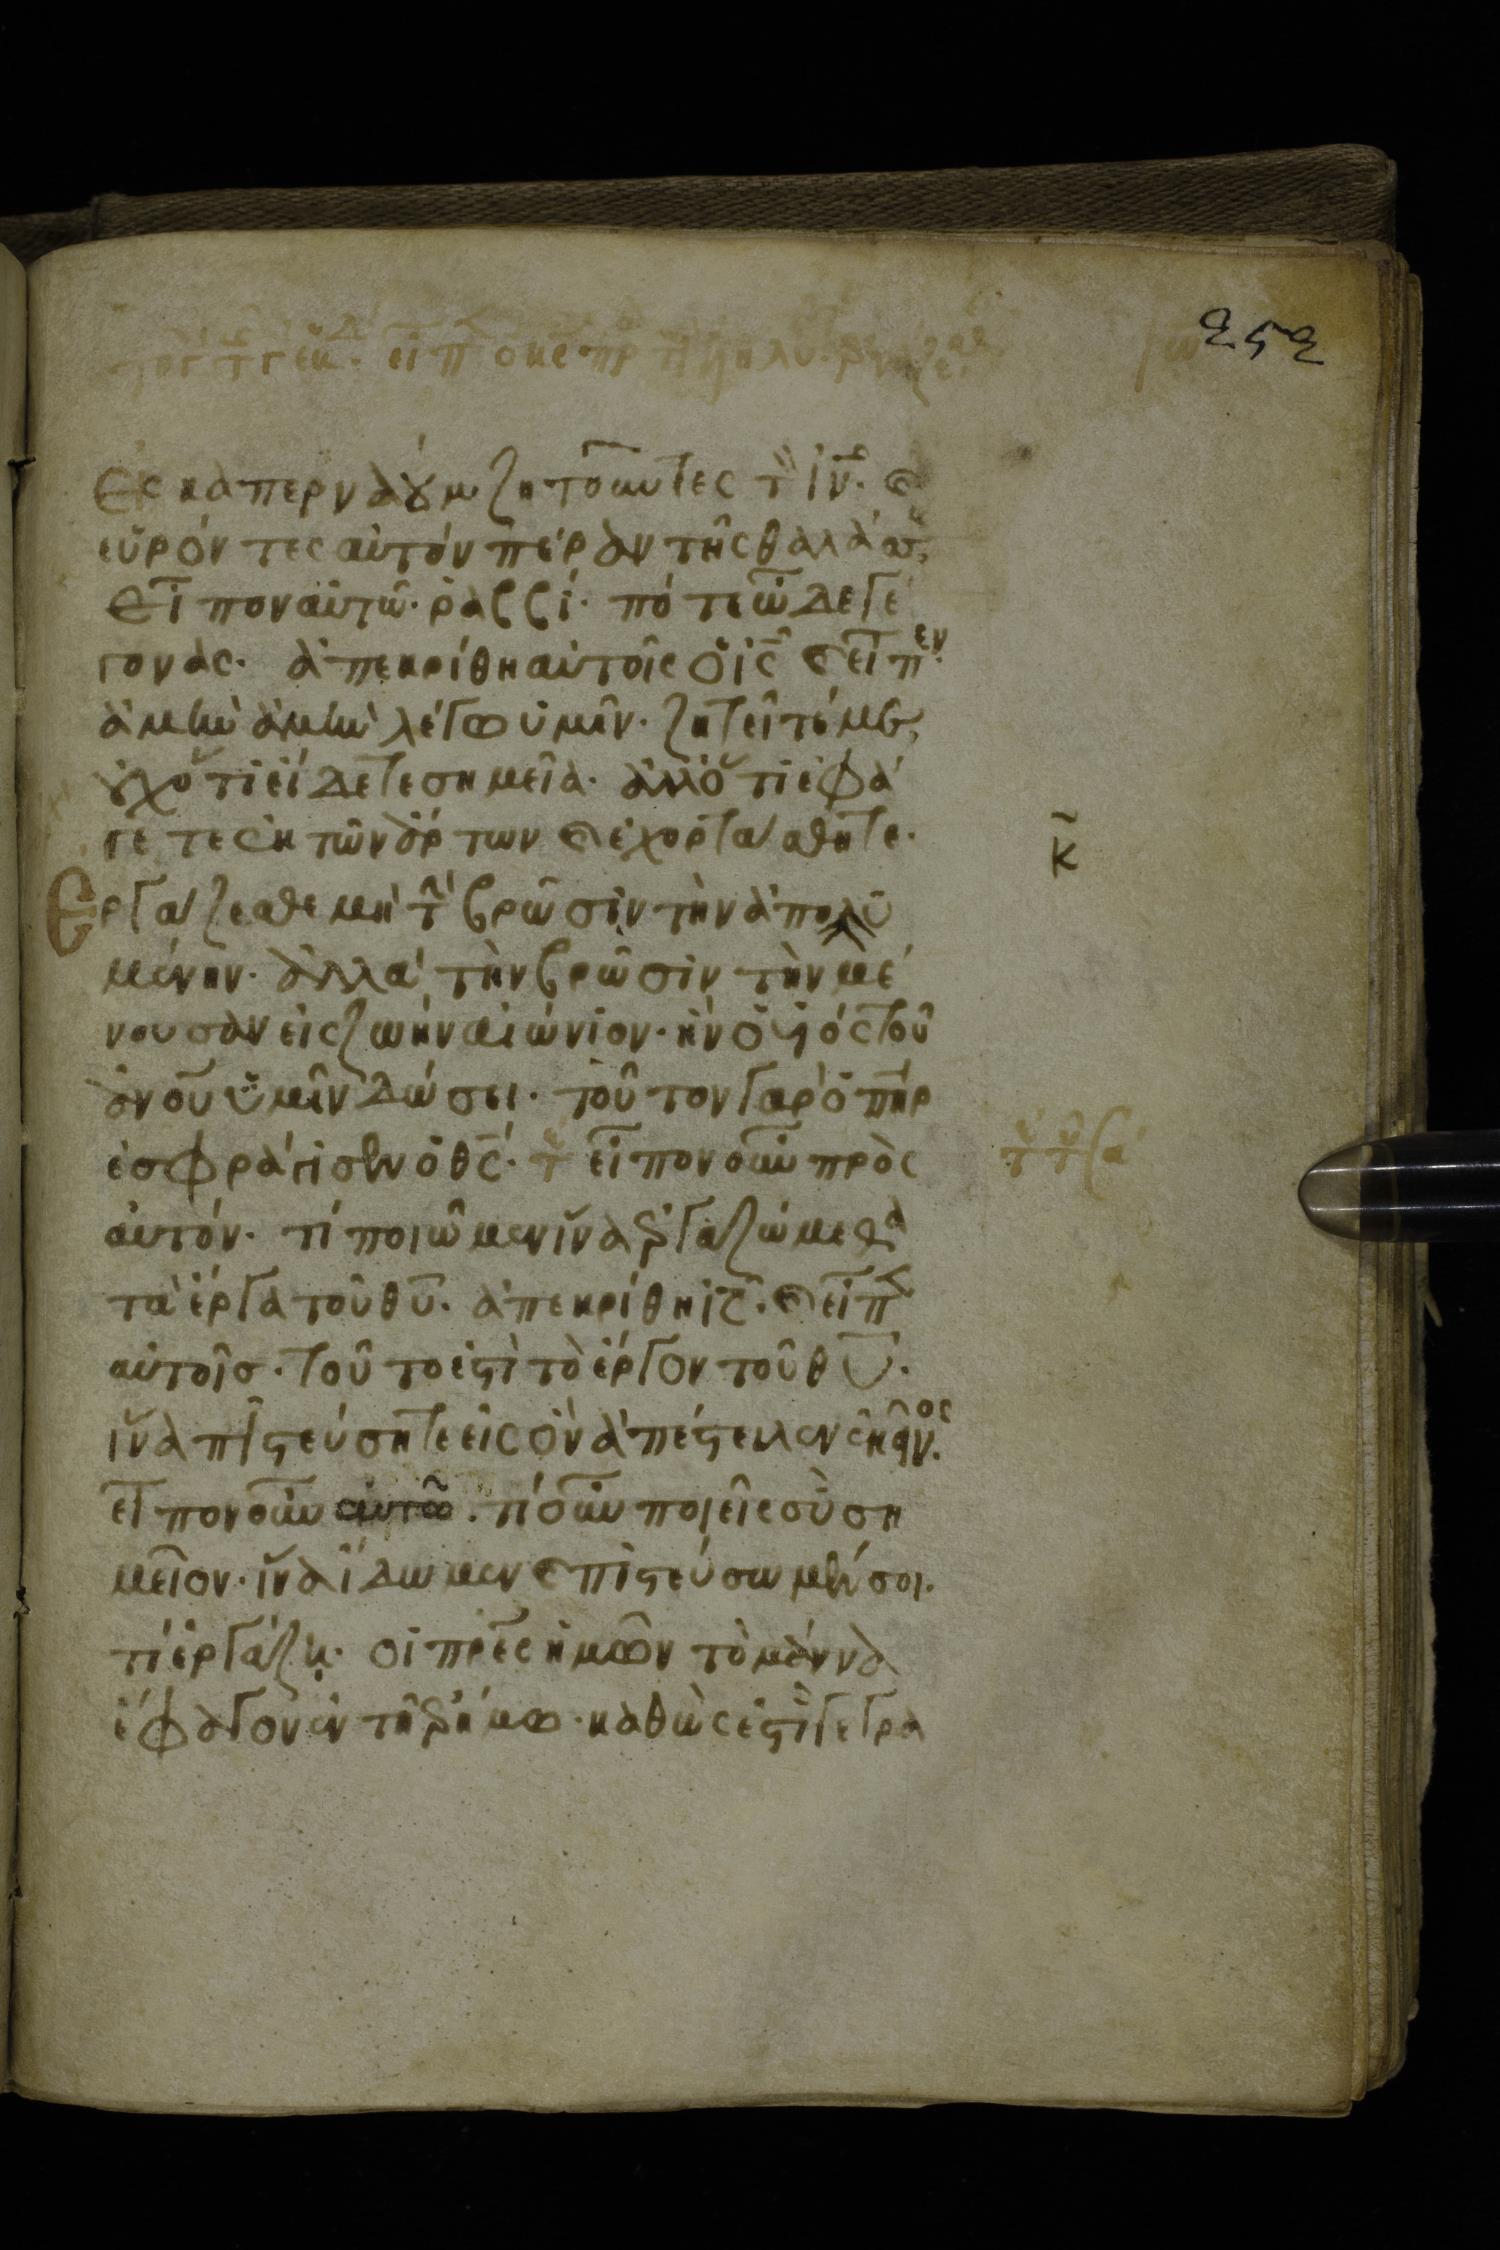 Ἐς καπερναούμ ζητοῦντες τὸν ἰν̅. καὶ
εὑρόντες αὐτὸν πέραν τῆς θαλάσσ
εἶπον αὐτῶ. ῥαββί. πότε ὧδε γέ
γονας. ἀπεκρίθη αὐτοῖς ὁ ις̅ καὶ εἶπεν.
ἀμὴν ἀμὴν λέγω ὑμῖν. ζητεῖτέ με,
οὐχ ὅτι εἴδετε σημεῖα. ἀλλ' ὅτι ἐφά
γετε ἐκ τῶν ἄρτων καὶ ἐχορτάσθητε.
κ̅
Ἐργάζεσθε μὴ τὴν βρῶσιν τὴν ἀπολυ
μένην. ἀλλὰ τὴν βρῶσιν τὴν μέ
νουσαν εἰς ζωὴν αἰώνιον. ἣν ὁ υἱός τοῦ
ανου̅ ὑμῖν δώσει. τοῦτον γὰρ ὁ πηρ̅
ἐσφράγισεν ὁ θς̅. τ εἶπον οὖν πρὸς
αὐτόν. τί ποιῶμεν ἵνα ἐργαζώμεθα
τὰ ἔργα τοῦ θυ̅. ἀπεκρίθη ις̅. καὶ εἶπεν
αὐτοῖσ. τοῦτο ἐστὶ τὸ ἔργον τοῦ θυ̅.
ἵνα πιστεύσητε εἰς ὃν ἀπέστειλεν ἐκεῖνος.
εἶπον οὖν αὐτῶ. τί οὖν ποιεῖς σὺ ση
μεῖον. ἵνα ἴδωμεν καὶ πιστεύσωμέν σοι.
τί ἐργάζη. οἱ πρες̅ ἡμῶν τὸ μάννα
ἔφαγον ἐν τῆ ἐρήμω. καθὼς ἐστὶ γεγρα